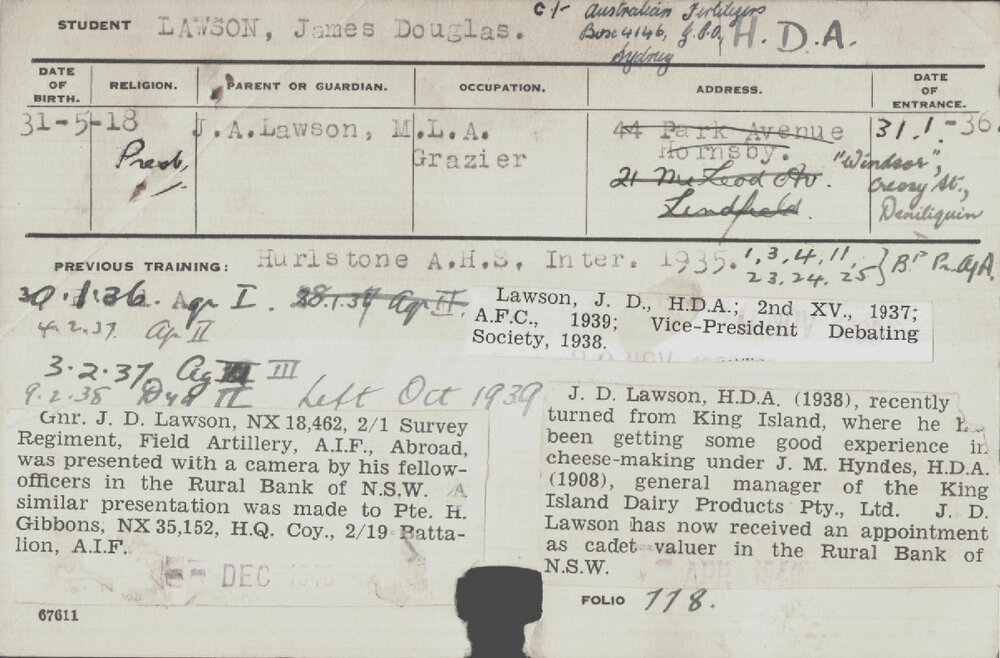 STUDENT LAWSON, James Douglas.
C/- Australian Fertilizers
Box 4146, G.P.O,
Sydney
H.D.A.
DATE OF BIRTH. RELIGION. PARENT OR GUARDIAN. OCCUPATION. ADDRESS. DATE OF ENTRANCE.
31-5-18 Presb. J.A.Lawson, M.L.A. 44 Park Avenue 31.1.-36
Grazier Hornsby. "Windsor",
21 McLeod Av. Cressy St.,
Lindfield. Deniliquin
PREVIOUS TRAINING: Hurlstone A.H.S. Inter. 1935. 1,3,4,11, 23,24,25 } B.P. Pr. Ag A.
30.1.36. Agr I. 28.1.37 Agr II.
4.2.37. Ag II
Lawson, J. D., H.D.A.; 2nd XV., 1937;
A.F.C., 1939; Vice-President Debating
Society, 1938.
3.2.37 Ag III
9.2.38 Dya II Left Oct 1939
Gnr. J. D. Lawson, NX 18,462, 2/1 Survey
Regiment, Field Artillery, A.I.F., Abroad,
was presented with a camera by his fellow-
officers in the Rural Bank of N.S.W. A
similar presentation was made to Pte. H.
Gibbons, NX 35,152, H.Q. Coy., 2/19 Batta-
lion, A.I.F.
DEC
J. D. Lawson, H.D.A. (1938), recently
turned from King Island, where he
been getting some good experience in
cheese-making under J. M. Hyndes, H.D.A.
(1908), general manager of the King
Island Dairy Products Pty., Ltd. J. D.
Lawson has now received an appointment
as cadet valuer in the Rural Bank of
N.S.W.
APR
FOLIO 118.
67611